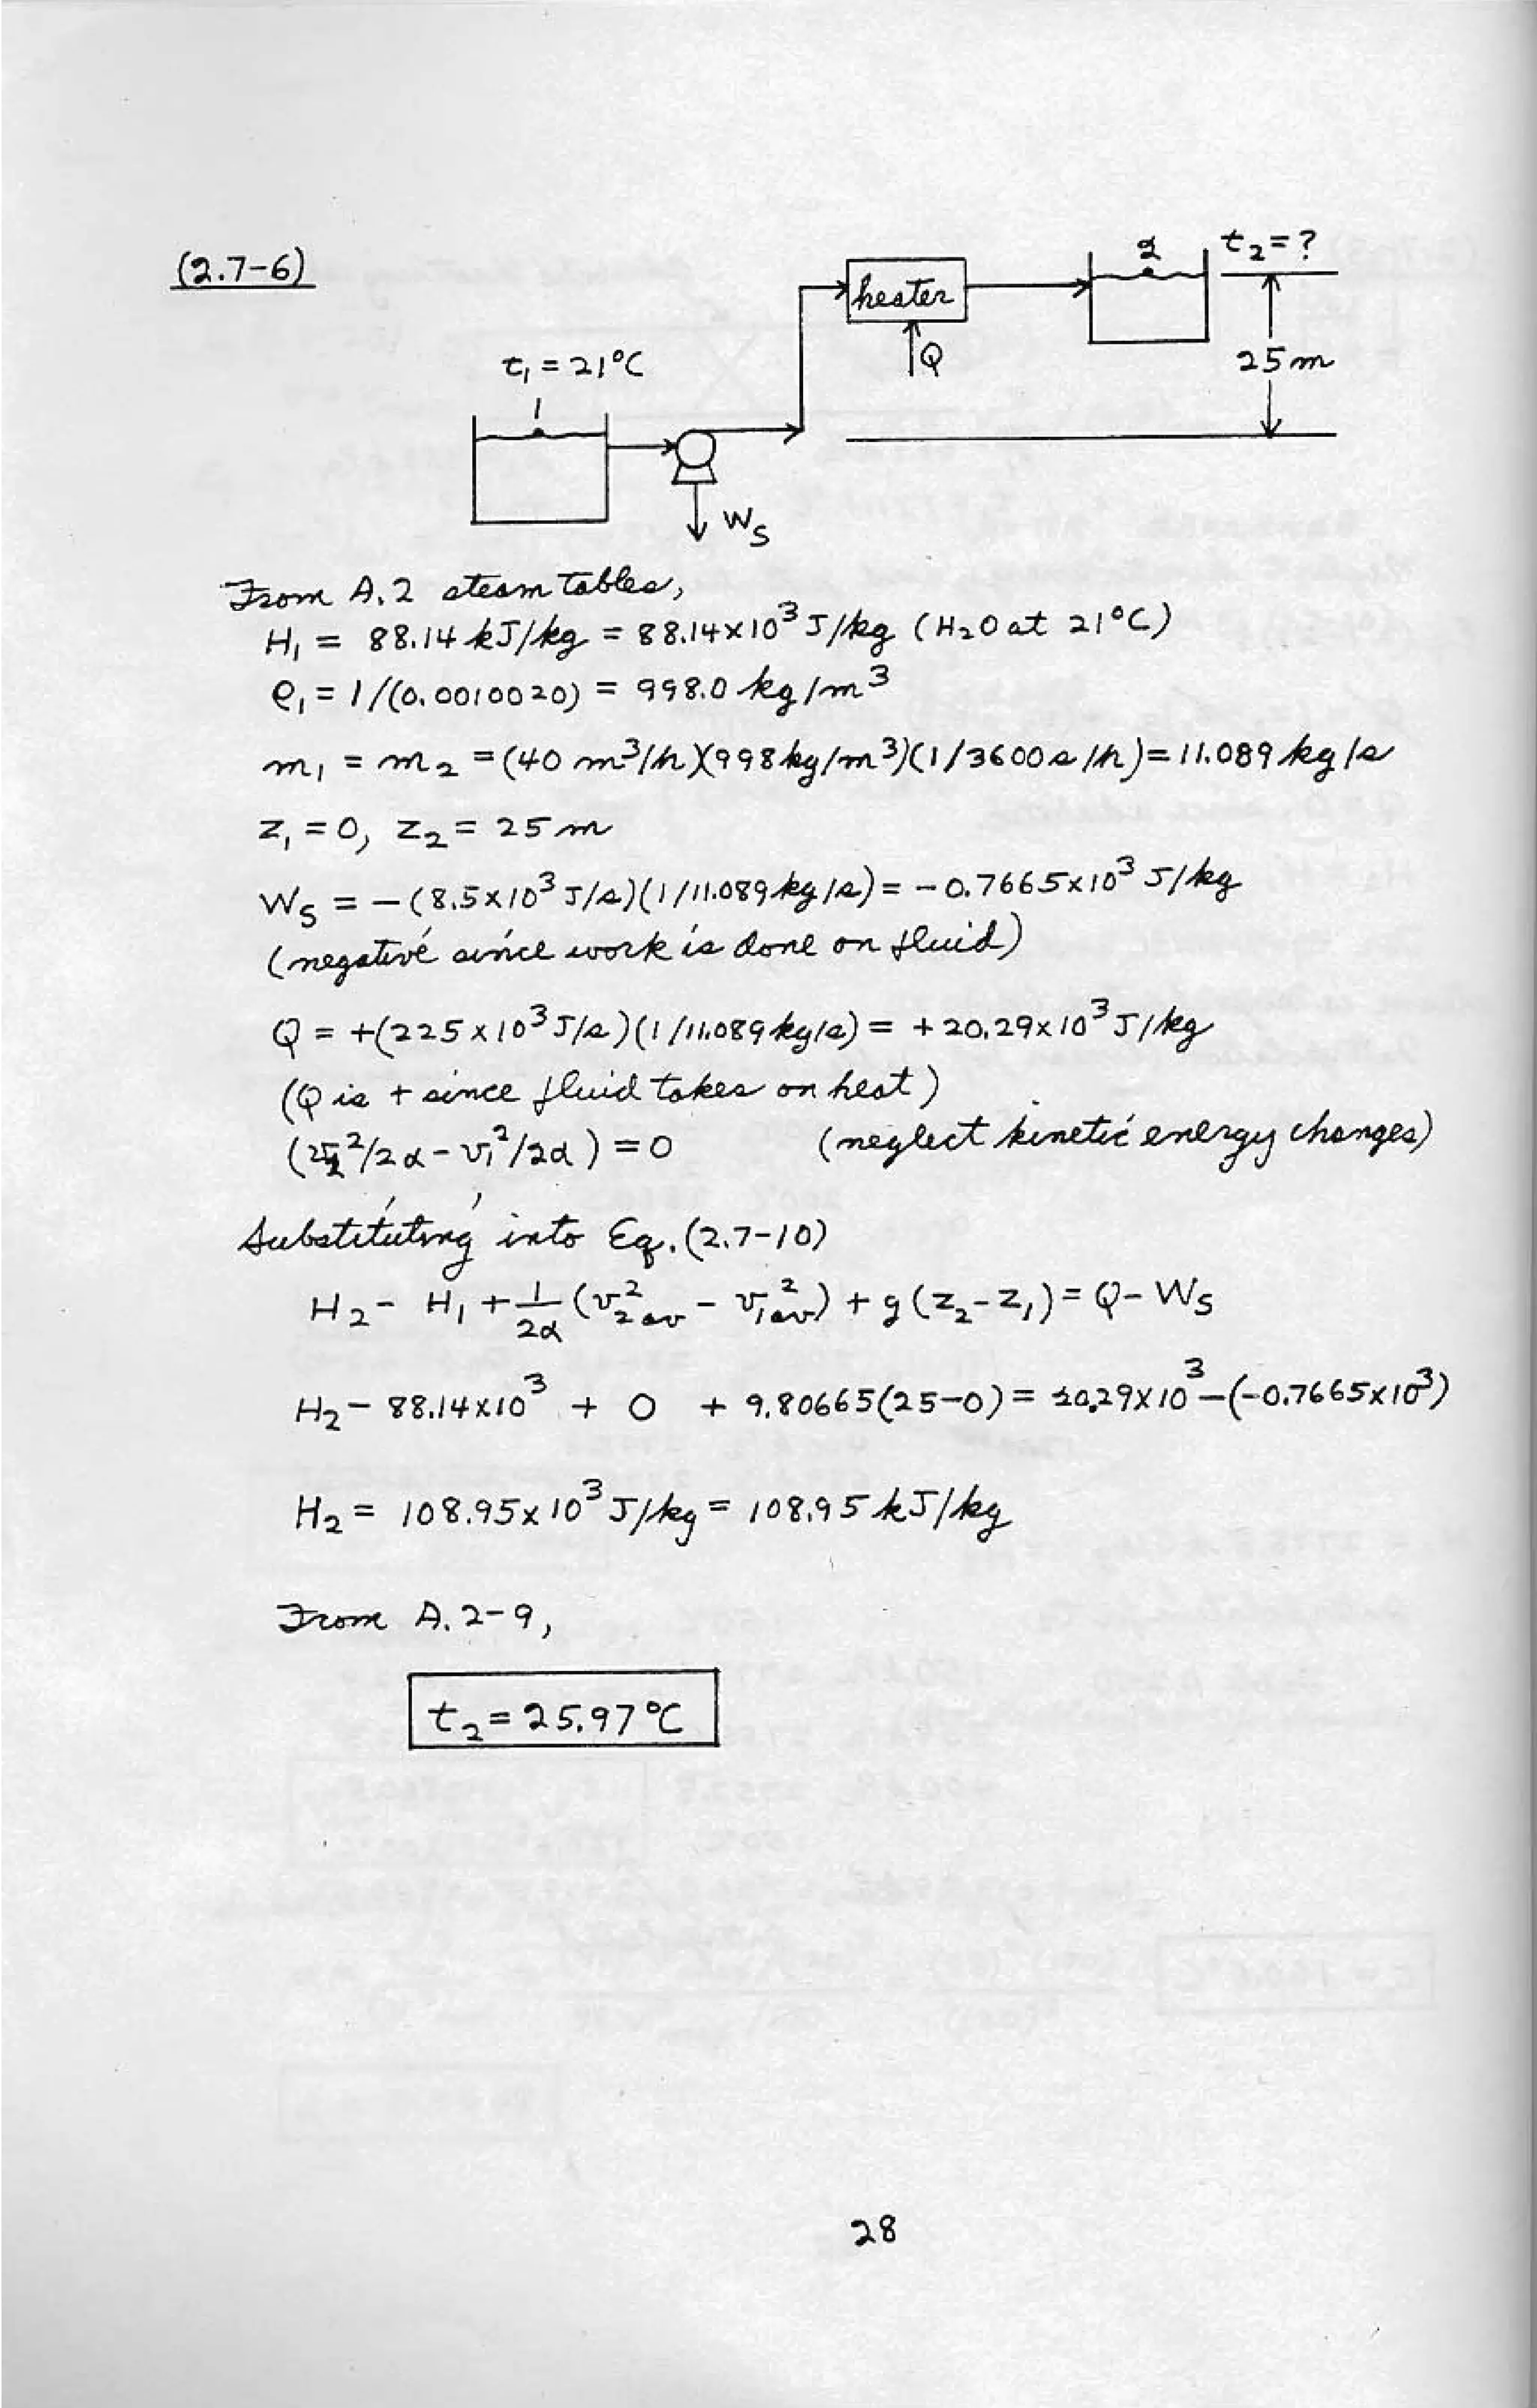 (2.7-6)
2
t₂=?
heater
Q
25 m
t₁ = 21°C
1
Ws
From A.2 steam tables,
H₁ = 88.14 kJ/kg = 88.14×10³ J/kg (H₂O at 21°C)
ρ₁ = 1/(0.0010020) = 998.0 kg/m³
m₁ = m₂ = (40 m³/h)(998 kg/m³)(1/3600 s/h) = 11.089 kg/s
z₁ = 0, z₂ = 25 m
Ws = -(8.5×10³ J/s)(1/11.089 kg/s) = -0.7665×10³ J/kg
(negative since work is done on fluid)
Q = +(225×10³ J/s)(1/11.089 kg/s) = +20.29×10³ J/kg
(Q is + since fluid takes on heat)
(v₂²/2α - v₁²/2α) = 0 (neglect kinetic energy changes)
Substituting into Eq. (2.7-10)
H₂ - H₁ + 1/2α (v²₂av - v₁av²) + g(z₂-z₁) = Q - Ws
H₂ - 88.14×10³ + 0 + 9.80665(25-0) = 20.29×10³-(-0.7665×10³)
H₂ = 108.95×10³ J/kg = 108.95 kJ/kg
From A.2-9,
t₂ = 25.97°C
28